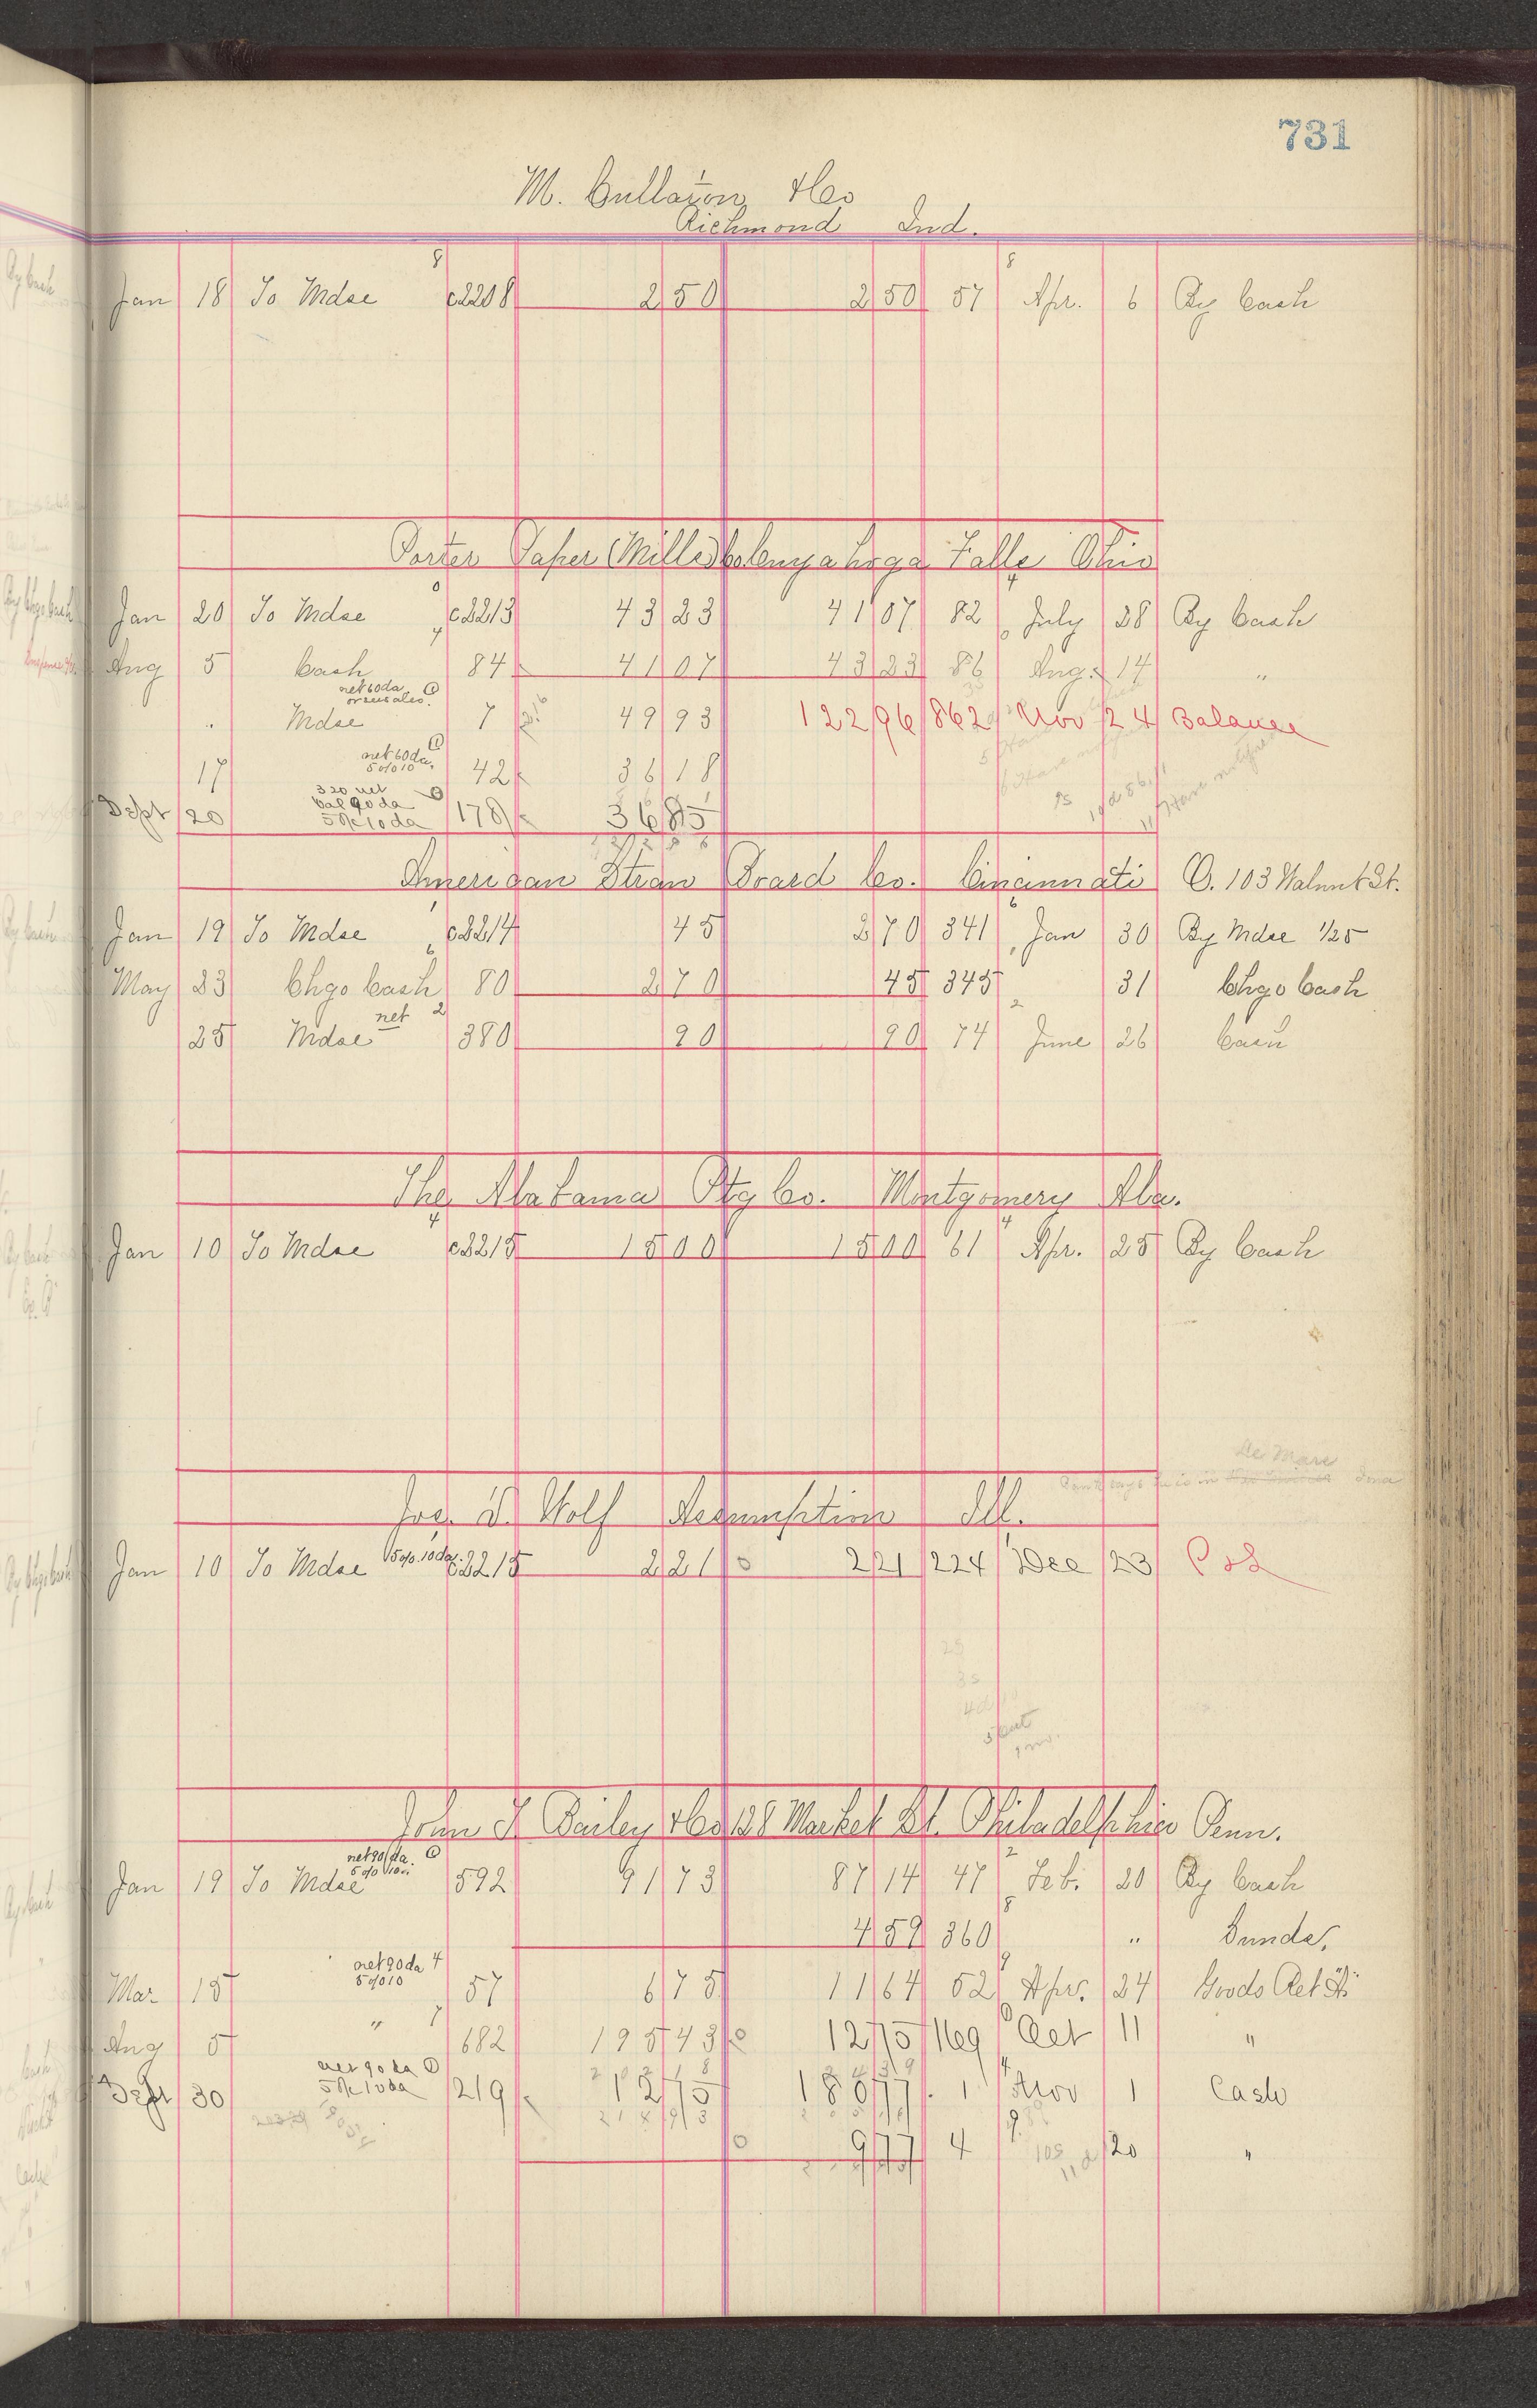 731
M. Cullaton & Co
Richmond Ind.
Jan 18 To Mdse c2208 2 50 2 50 57 Apr. 6 By Cash
Porter Paper Mills Cuyahoga Falls Ohio
Jan 20 To Mdse c2213 43 23 41 07 82 July 28 By Cash
Aug 5 Cash 84 41 07 43 23 86 Aug. 14 "
net 60 da
Mdse 7 49 93 122 96 862 Nov 24 Balance
net 60 da.
5 % 10
17 42 36 18
320 net
bal 90 da
Sept 20 5 % 10 da 178 36 85
American Straw Board Co. Cincinnati O. 103 Walnut St.
Jan 19 To Mdse c2214 45 2 70 341 Jan 30 By Mdse 1/25
May 23 Chgo Cash 80 2 70 45 345 31 Chgo Cash
25 Mdse net 380 90 90 74 June 26 Cash
The Alabama Ptg Co. Montgomery Ala.
Jan 10 To Mdse c2215 15 00 15 00 61 Apr. 25 By Cash
Le Mars
Jos. D. Wolf Assumption Ill.
Jan 10 To Mdse 5 % 10 da. c2215 2 21 2 21 224 Dec 23 P & L
John T Bailey & Co Market St. Philadelphia Penn.
net 90 da.
Jan 19 To Mdse 592 91 73 87 14 47 Feb. 20 By Cash
4 59 360 " Sunds.
net 90 da
5 % 10
Mar 15 57 6 75 11 64 52 Apr. 24 Goods Ret'd
Aug 5 " 682 195 43 12 75 169 Oct 11 "
net 90 da
Sept 30 5 % 10 da 219 12 75 180 77 1 Nov 1 Cash
9 77 4 20 "